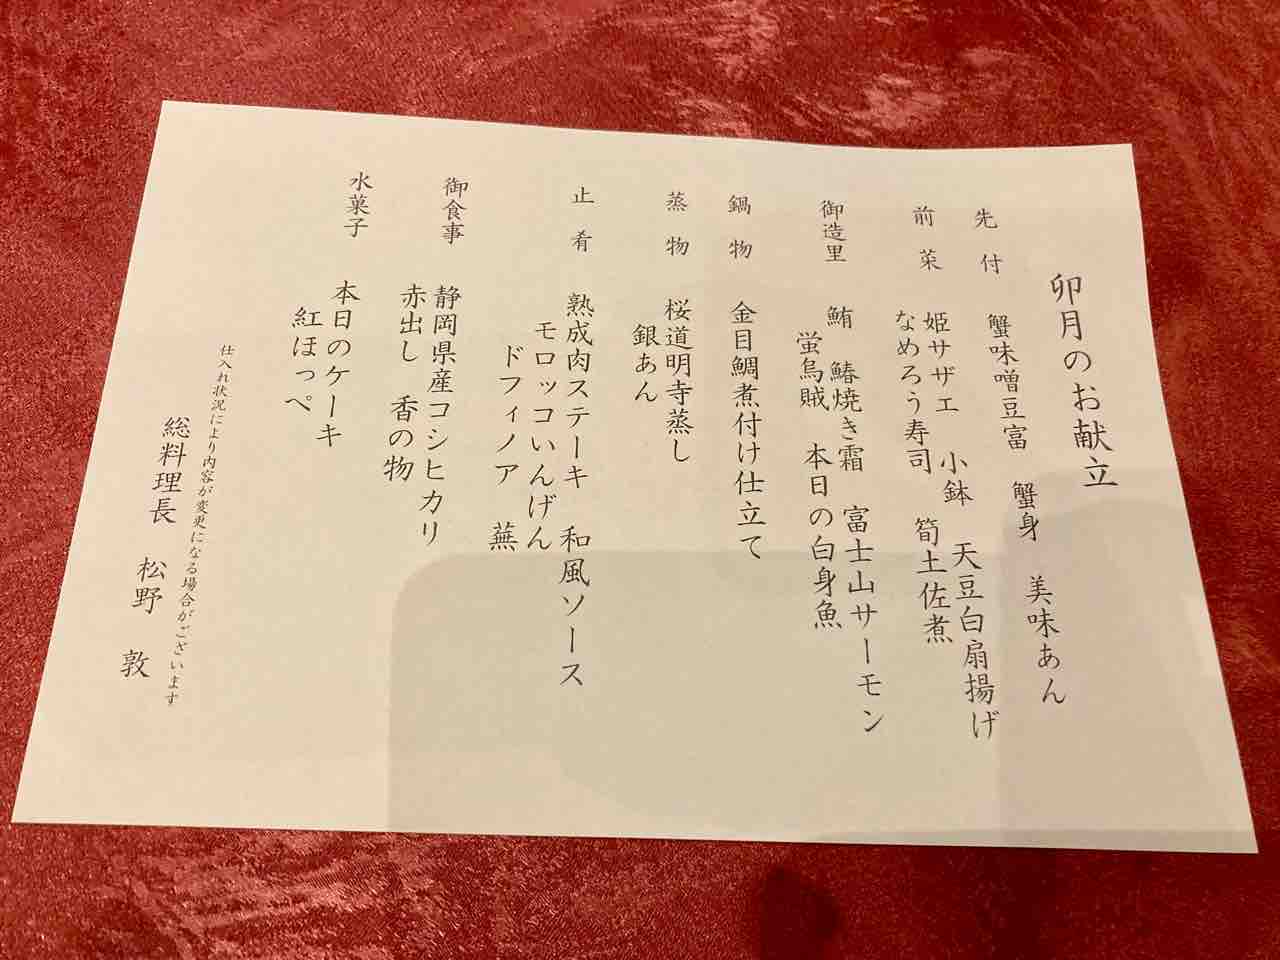 卯月のお献立
先付　蟹味噌豆富　蟹身　美味あん
前菜　姫サザエ　小鉢　天豆白扇揚げ
なめろう寿司　筍土佐煮
御造里　鮪　鰆焼き霜　富士山サーモン
蛍烏賊　本日の白身魚
鍋物　金目鯛煮付け仕立て
蒸物　桜道明寺蒸し
銀あん
止肴　熟成肉ステーキ　和風ソース
モロッコいんげん
ドフィノア　蕪
御食事　静岡県産コシヒカリ
赤出し　香の物
水菓子　本日のケーキ
紅ほっぺ
仕入れ状況により内容が変更になる場合がございます
総料理長　松野　敦